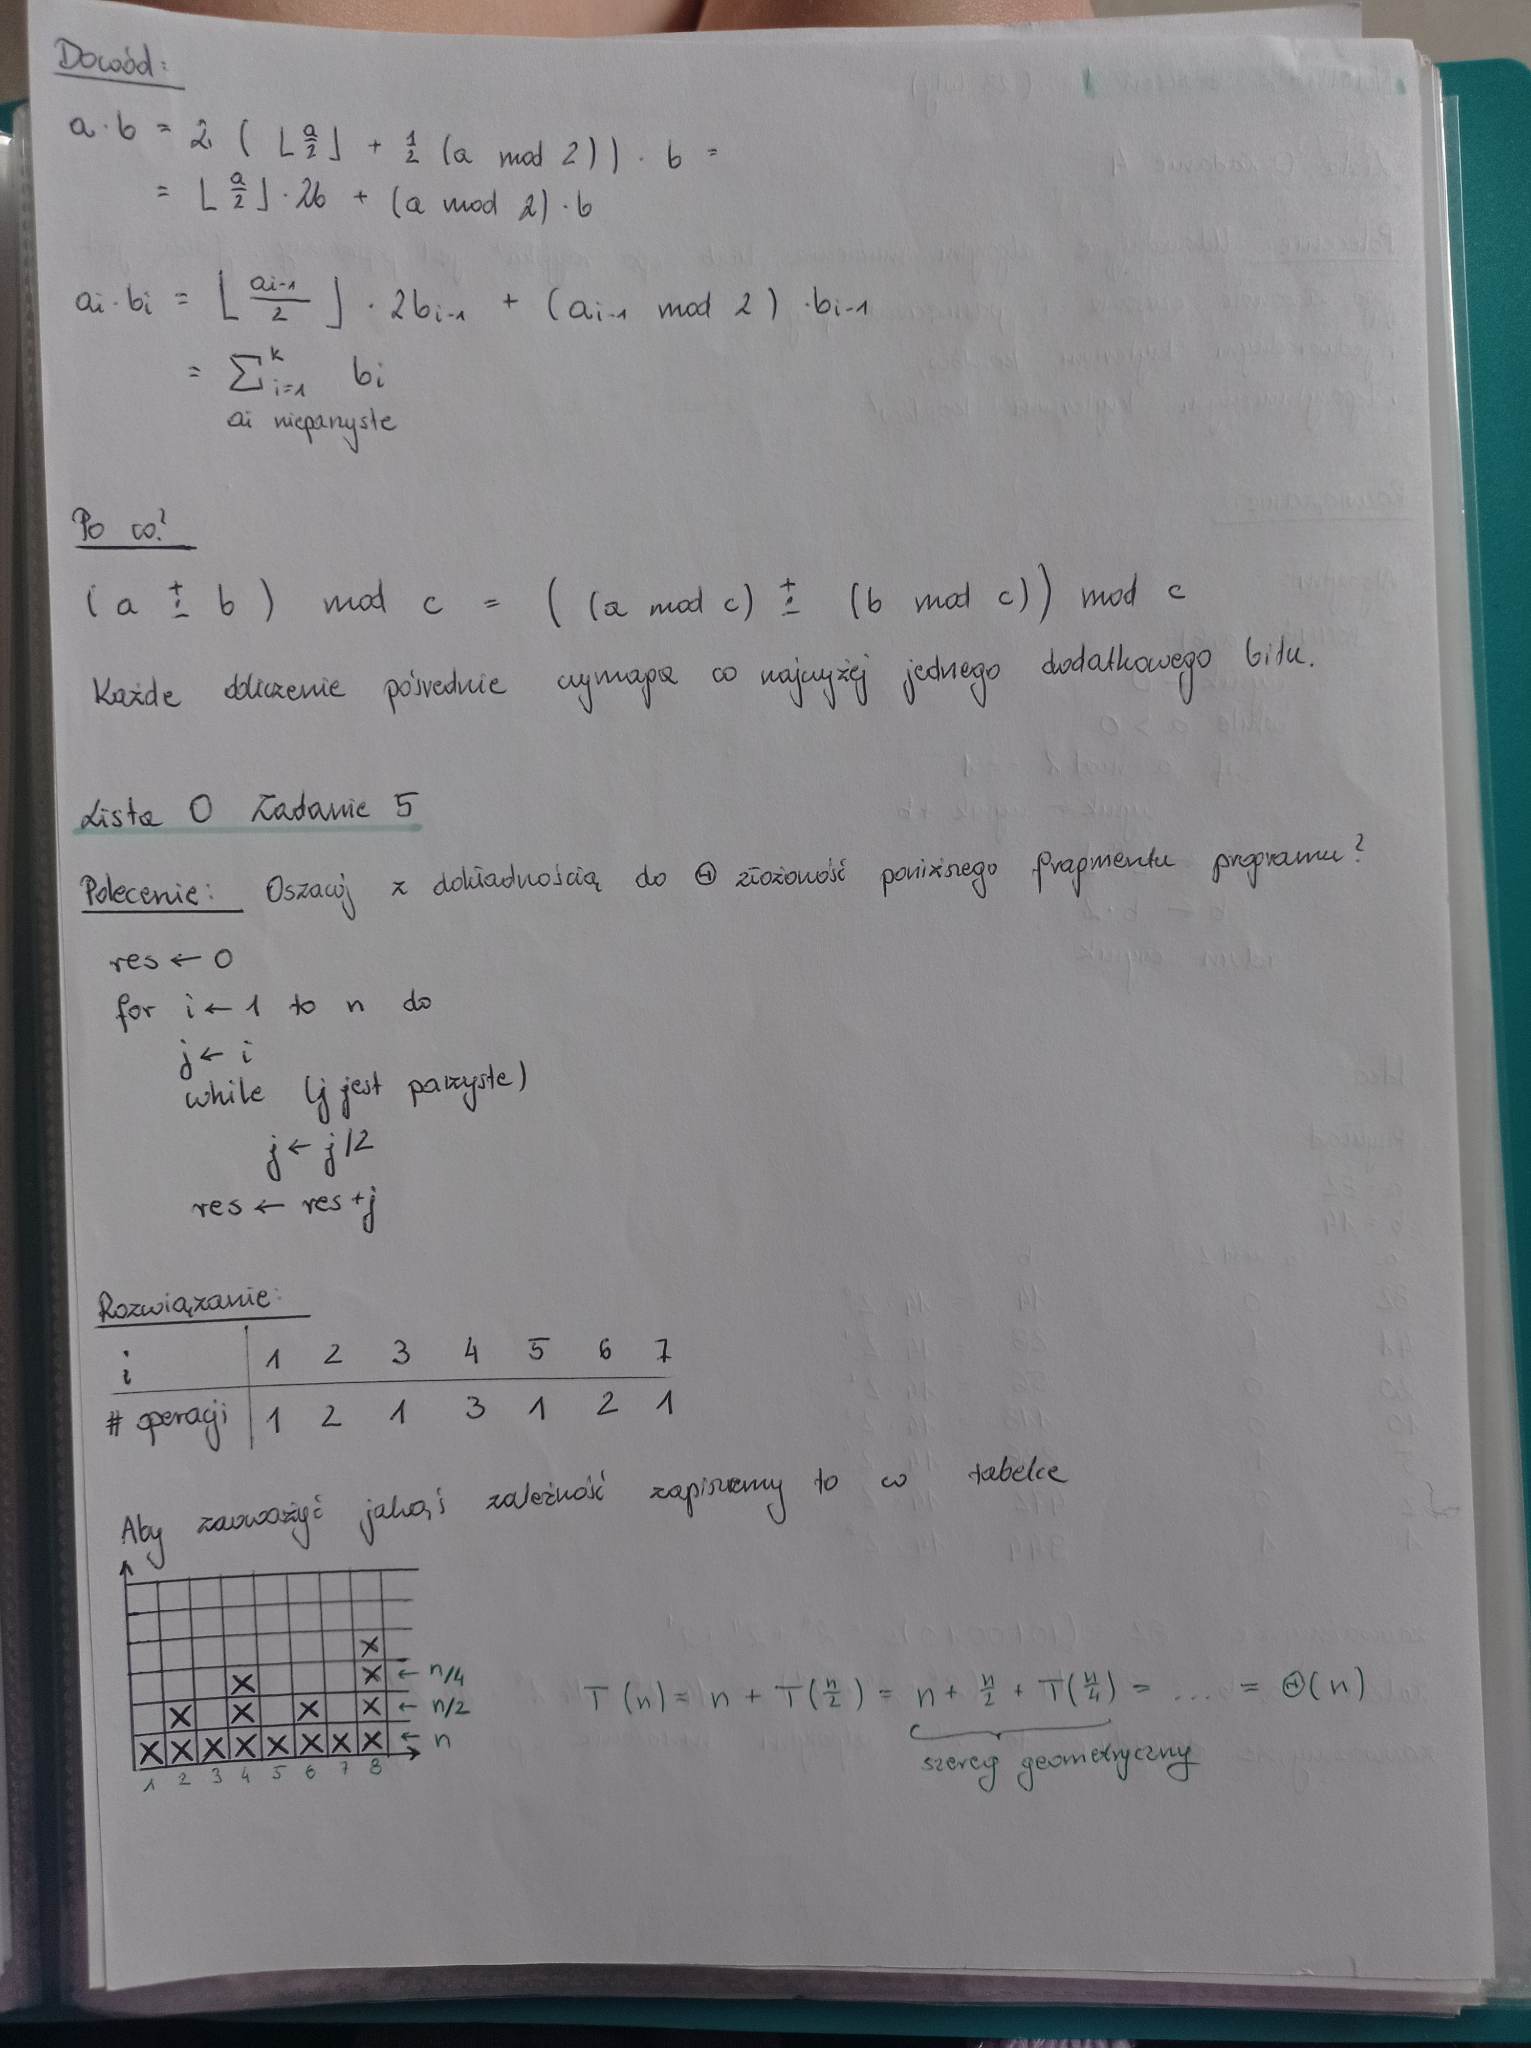 Dowód:
a·b = 2 ( ⌊a/2⌋ + 1/2 (a mod 2)) · b =
= ⌊a/2⌋ · 2b + (a mod 2) · b
ai·bi = ⌊ai-1/2⌋ · 2bi-1 + (ai-1 mod 2) · bi-1
= ∑ᵏi=1 bi
ai nieparzyste
Po co?
(a ± b) mod c = ((a mod c) ± (b mod c)) mod c
Każde obliczenie pośrednie wymaga co najwyżej jednego dodatkowego bitu.
Lista 0 Zadanie 5
Polecenie: Oszacuj z dokładnością do Θ złożoność poniższego fragmentu programu?
res ← 0
for i ← 1 to n do
j ← i
while (j jest parzyste)
j ← j/2
res ← res + j
Rozwiązanie:
i 1 2 3 4 5 6 7
# operacji 1 2 1 3 1 2 1
Aby zauważyć jakąś zależność zapiszemy to w tabelce
x
x x ← n/4
x x x x ← n/2
x x x x x x x x ← n
1 2 3 4 5 6 7 8
T(n) = n + T(n/2) = n + n/2 + T(n/4) = ... = Θ(n)
szereg geometryczny